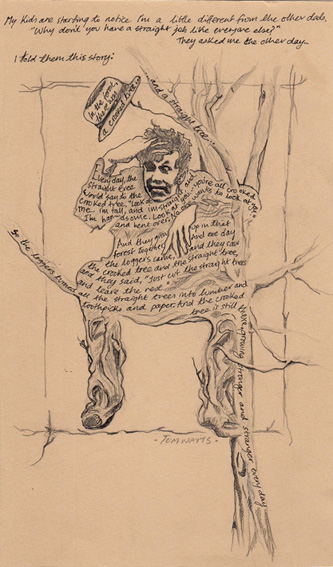 My kids are starting to notice I'm a little different from the other dads.
"Why don't you have a straight job like everyone else?"
They asked me the other day.
I told them this story:
In the forest
there was
a crooked tree
and a straight tree.
Every day, the
straight tree
would say to the
crooked tree, "Look at
me. I'm tall, and I'm straight, and
I'm handsome. Look at you, you're all crooked
and bent over. No one wants to look at you."
And they grew up in that
forest together. And one day
the loggers came, and they saw
the crooked tree and the straight tree,
and they said, "Just cut the straight trees
and leave the rest."
So the loggers turned all the straight trees into lumber and
toothpicks and paper. And the crooked
tree is still
there, growing stronger and stranger every day.
TOM WAITS